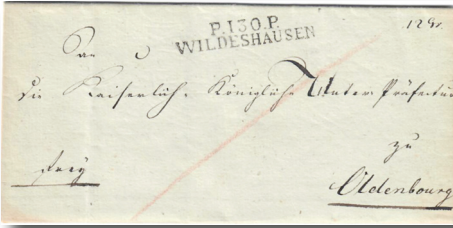 P.130.P.
WILDESHAUSEN
An
Die Kaiserlich. Königliche Unter Präfectur
zu
frey
Oldenbourg